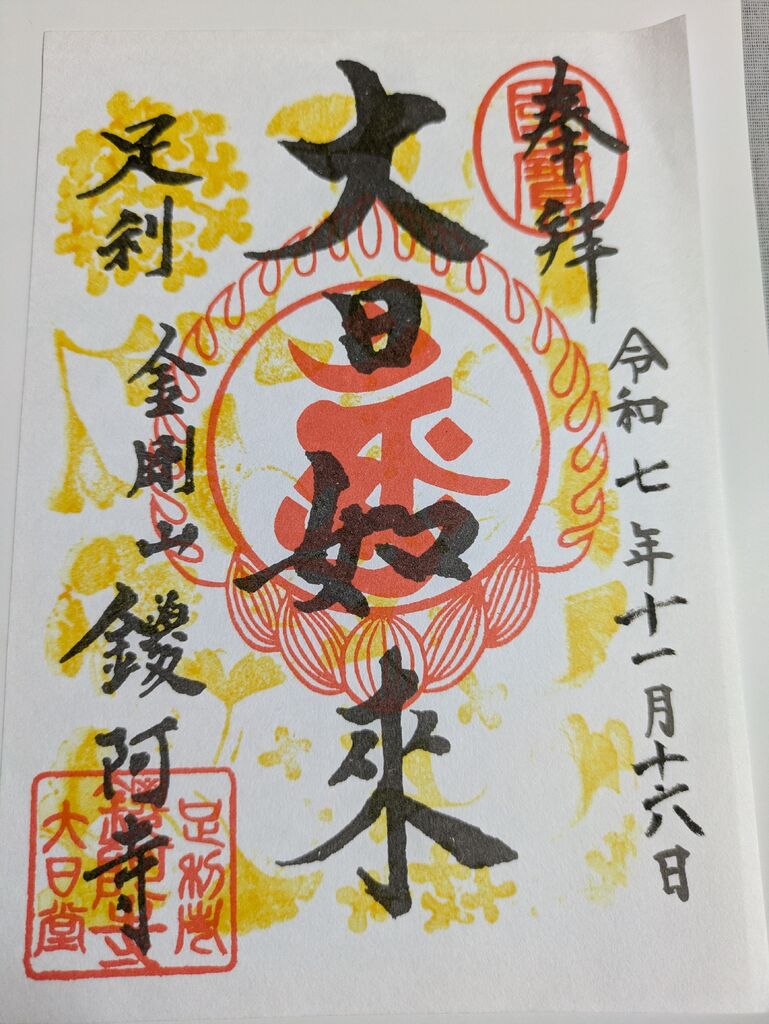 奉拝
国寳
令和七年十一月十六日
大日如来
足利
金剛山
鑁阿寺
足利市
鑁阿寺
大日堂